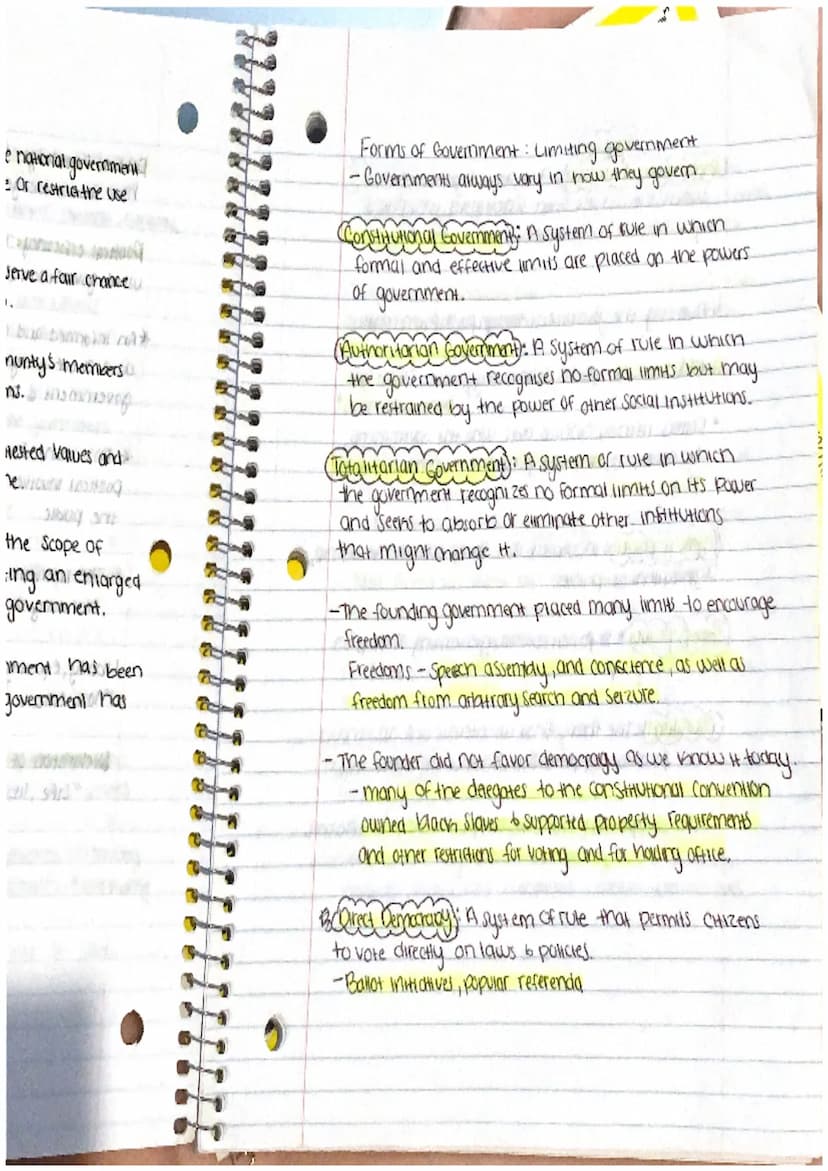 e national government
e or restrict the use
serve a fair chance
munity's members
ns.
nested values and
re.
the scope of
ing an enlarged
government.
nment has been
government has
Forms of Government : Limiting government
- Governments always vary in how they govern.
Constitutional Government: A system of rule in which
formal and effective limits are placed on the powers
of government.
Authoritarian Government: A system of rule in which
the government recognises no formal limits but may
be restrained by the power of other social institutions.
Totalitarian Government: A system of rule in which
the government recognizes no formal limits on its power
and seeks to absorb or eliminate other institutions
that might change it.
- The founding government placed many limits to encourage
freedom.
Freedoms - Speech assembly, and conscience, as well as
freedom from arbitrary search and seizure.
- The founder did not favor democracy as we know it today.
- many of the delegates to the constitutional convention
owned black slaves & supported property requirements
and other restrictions for voting and for holding office.
Direct Democracy: A system of rule that permits citizens
to vote directly on laws & policies.
- Ballot initiatives, popular referenda